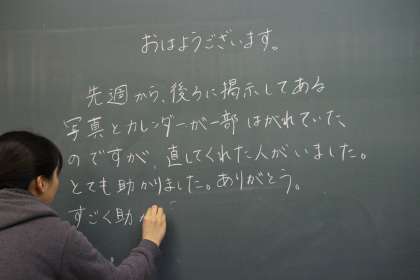 おはようございます。
先週から、後ろに掲示してある
写真とカレンダーが一部はがれていた
のですが、直してくれた人がいました。
とても助かりました。ありがとう。
すごく助か